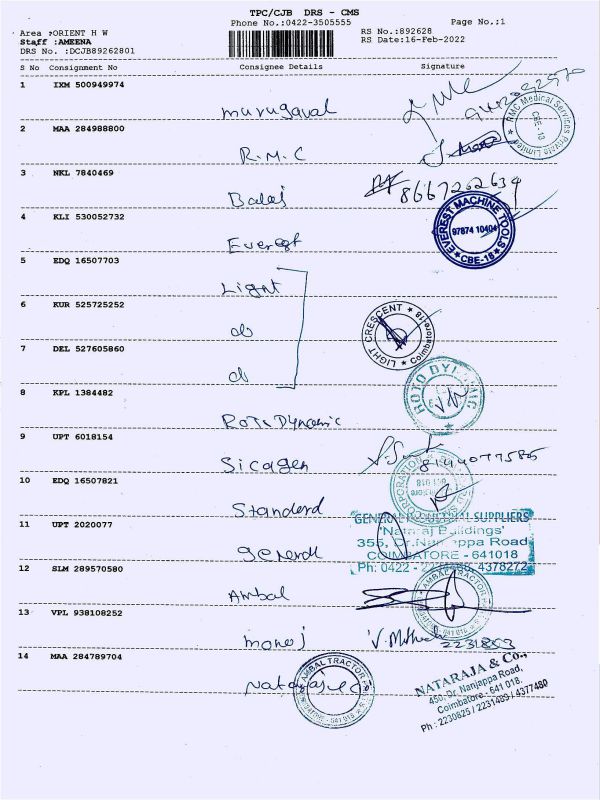 TPC/CJB DRS - CMS
Phone No.:0422-3505555
Page No.;1
Area :ORIENT H W
RS No.:892628
Staff :AMEENA
RS Date:16-Feb-2022
DRS No. :DCJB89262801
S No Consignment No Consignee Details Signature
1 IXM 500949974
murugavel
2 MAA 284988800
R.M.C
RMC Medical Services Private Limited
CBE - 13
3 NKL 7840469
Balaj
8667262634
4 KLI 530052732
Everest
EVEREST MACHINE TOOLS
97874 10404
CBE-18
5 EDQ 16507703
Light
6 KUR 525725252
do
LIGHT CRESCENT
Coimbatore-18
7 DEL 527605860
do
8 KPL 1384482
Roto Dynamic
ROTO DYNAMIC
9 UPT 6018154
Sicagen
10 EDQ 16507821
Standard
CORPORATION
641 018
11 UPT 2020077
General
GENERAL INDUSTRIAL SUPPLIERS
'Nataraj Buildings'
355, Dr.Nanjappa Road
COIMBATORE - 641018
Ph: 0422 - 4378272
12 SLM 289570580
Ambal
AMBAL TRACTOR
641 018
13 VPL 938108252
manoj
2231803
14 MAA 284789704
Nataraj & Co
AMBAL TRACTOR
COIMBATORE - 641 018
NATARAJA & Co.,
450, Dr. Nanjappa Road,
Coimbatore - 641 018.
Ph : 2230825 / 2231489 / 4377480